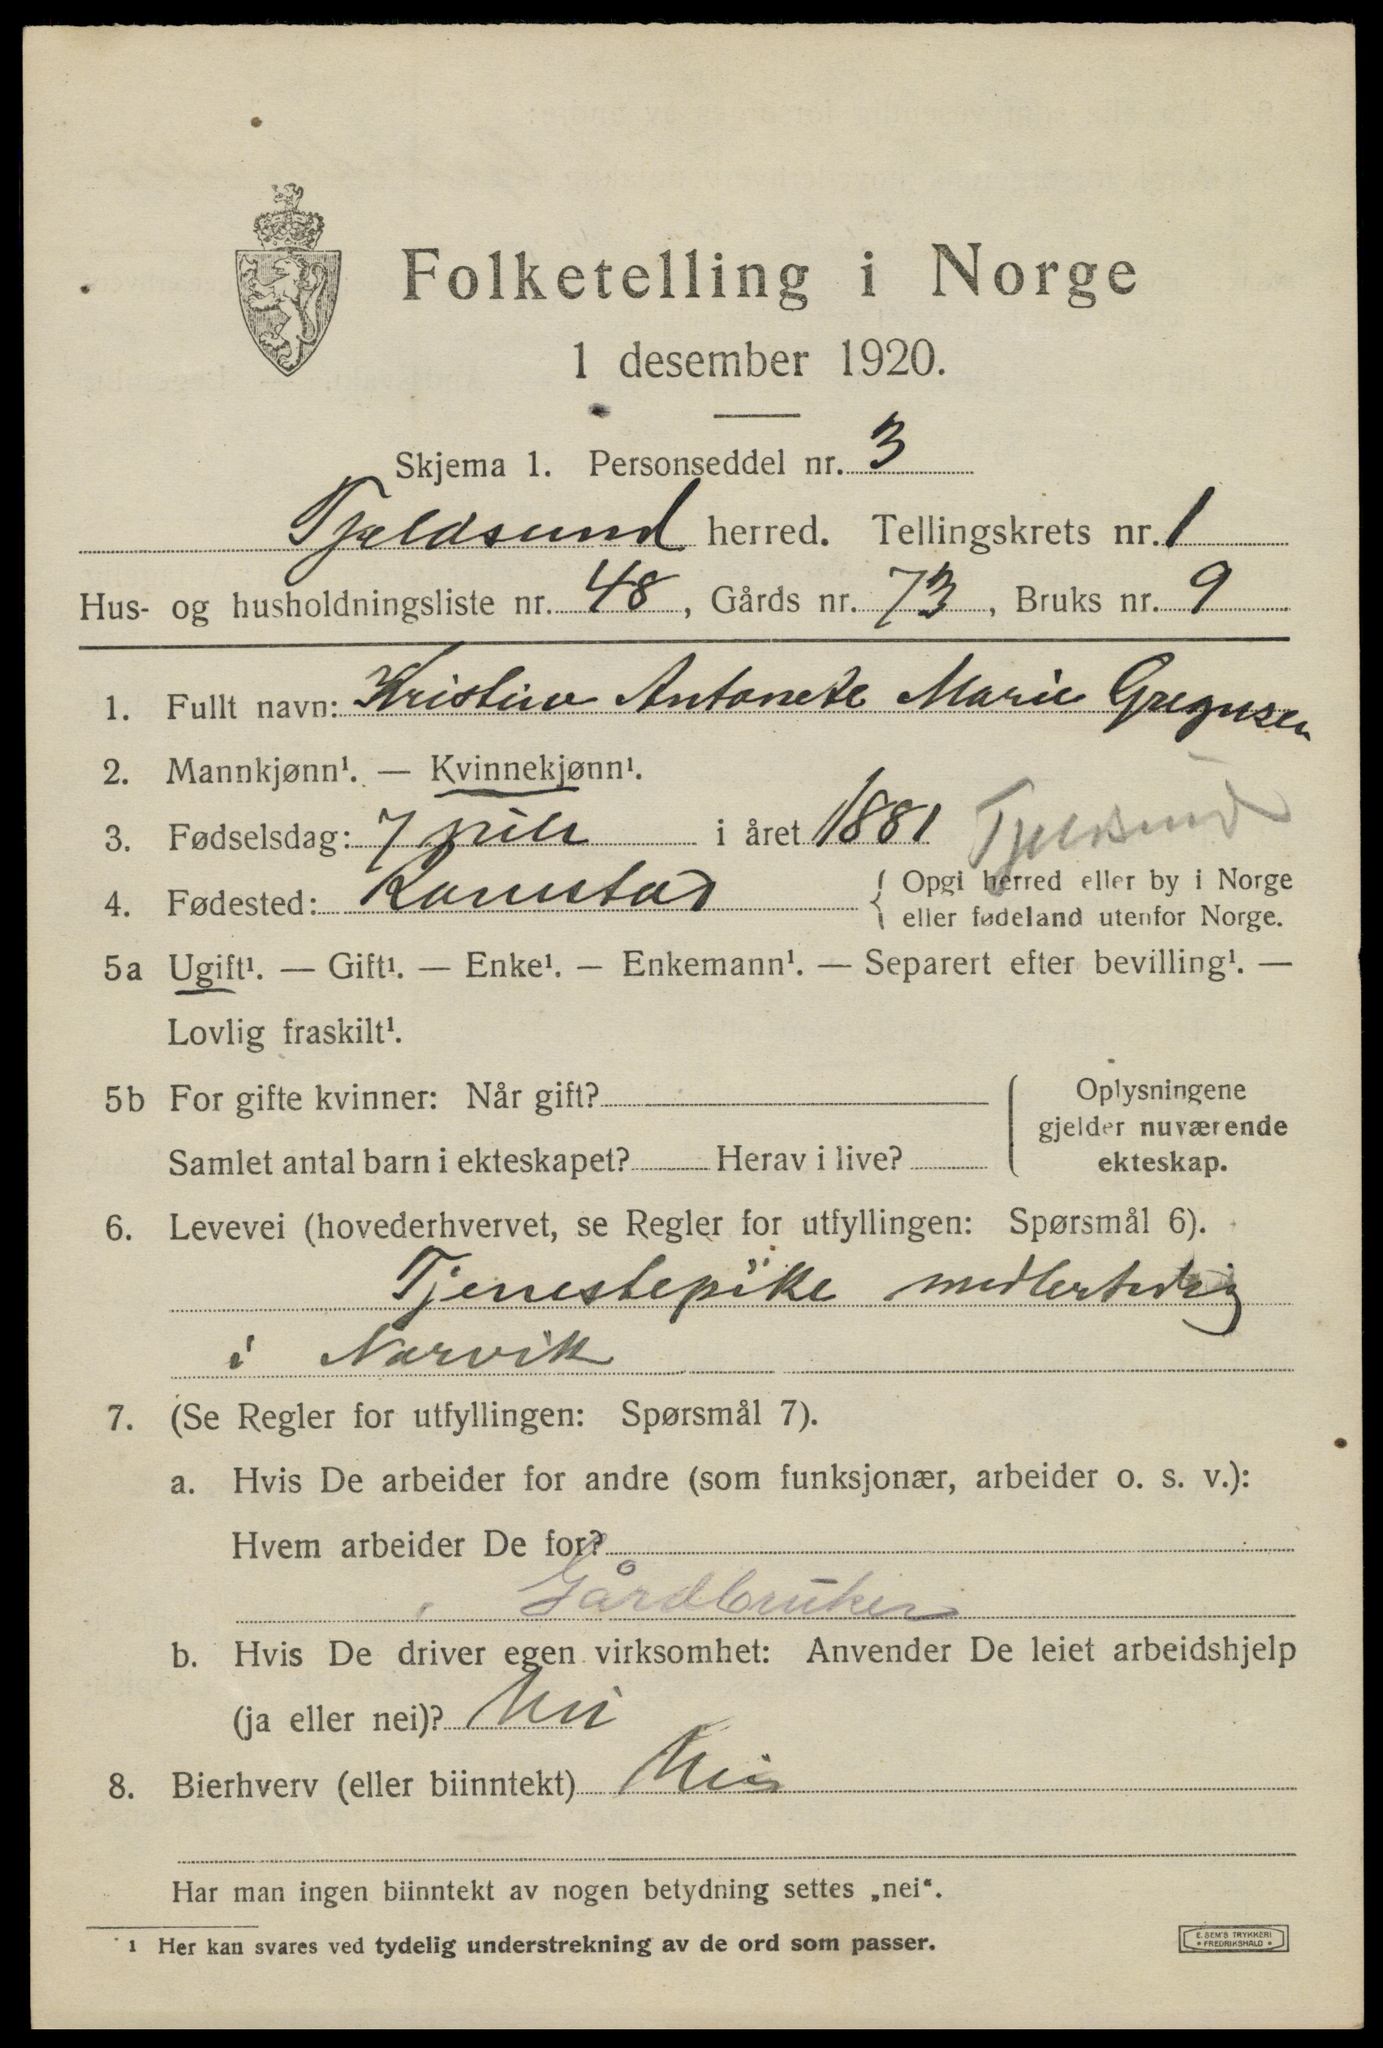 Folketelling i Norge
1 desember 1920.
Skjema 1. Personseddel nr. 3
Tjeldsund herred. Tellingskrets nr. 1
Hus- og husholdningsliste nr. 48, Gårds nr. 73, Bruks nr. 9
1. Fullt navn: Antonete Marie
2. Mannkjønn¹. — Kvinnekjønn¹.
3. Fødselsdag: 7 i året 1881 Tjeldsund
4. Fødested: Ramstad { Opgi herred eller by i Norge
eller fødeland utenfor Norge.
5a Ugift¹. — Gift¹. — Enke¹. — Enkemann¹. — Separert efter bevilling¹. —
Lovlig fraskilt¹.
5b For gifte kvinner: Når gift?
Samlet antal barn i ekteskapet? Herav i live?
Oplysningene
gjelder nuværende
ekteskap.
6. Levevei (hovederhvervet, se Regler for utfyllingen: Spørsmål 6).
Tjenestepike midlertidig
i Narvik
7. (Se Regler for utfyllingen: Spørsmål 7).
a. Hvis De arbeider for andre (som funksjonær, arbeider o. s. v.):
Hvem arbeider De for?
Gårdbruker
b. Hvis De driver egen virksomhet: Anvender De leiet arbeidshjelp
(ja eller nei)? Nei
8. Bierhverv (eller biinntekt) Nei
Har man ingen biinntekt av nogen betydning settes „nei“.
¹ Her kan svares ved tydelig understrekning av de ord som passer.
E. SEM'S TRYKKERI
• FREDRIKSHALD •